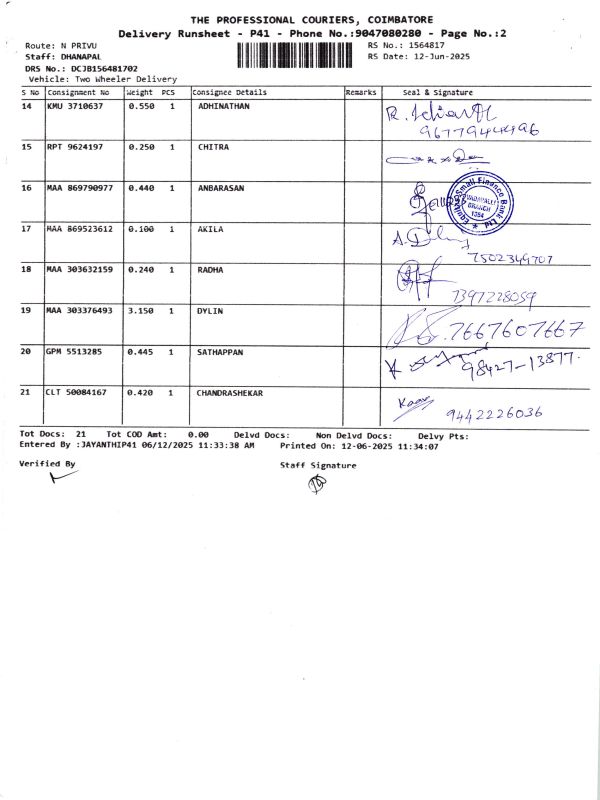 THE PROFESSIONAL COURIERS, COIMBATORE
Delivery Runsheet - P41 - Phone No.:9047080280 - Page No.:2
Route: N PRIVU RS No.: 1564817
Staff: DHANAPAL RS Date: 12-Jun-2025
DRS No.: DCJB156481702
Vehicle: Two Wheeler Delivery
S No Consignment No Weight PCS Consignee Details Remarks Seal & Signature
14 KMU 3710637 0.550 1 ADHINATHAN
9677944496
15 RPT 9624197 0.250 1 CHITRA
16 MAA 869790977 0.440 1 ANBARASAN
Equitas Small Finance Bank Ltd
VADAVALLI
BRANCH
1384
17 MAA 869523612 0.100 1 AKILA
7502349707
18 MAA 303632159 0.240 1 RADHA
7397228059
19 MAA 303376493 3.150 1 DYLIN
7667607667
20 GPM 5513285 0.445 1 SATHAPPAN
98427-13877.
21 CLT 50084167 0.420 1 CHANDRASHEKAR
9442226036
Tot Docs: 21 Tot COD Amt: 0.00 Delvd Docs: Non Delvd Docs: Delvy Pts:
Entered By :JAYANTHIP41 06/12/2025 11:33:38 AM Printed On: 12-06-2025 11:34:07
Verified By Staff Signature